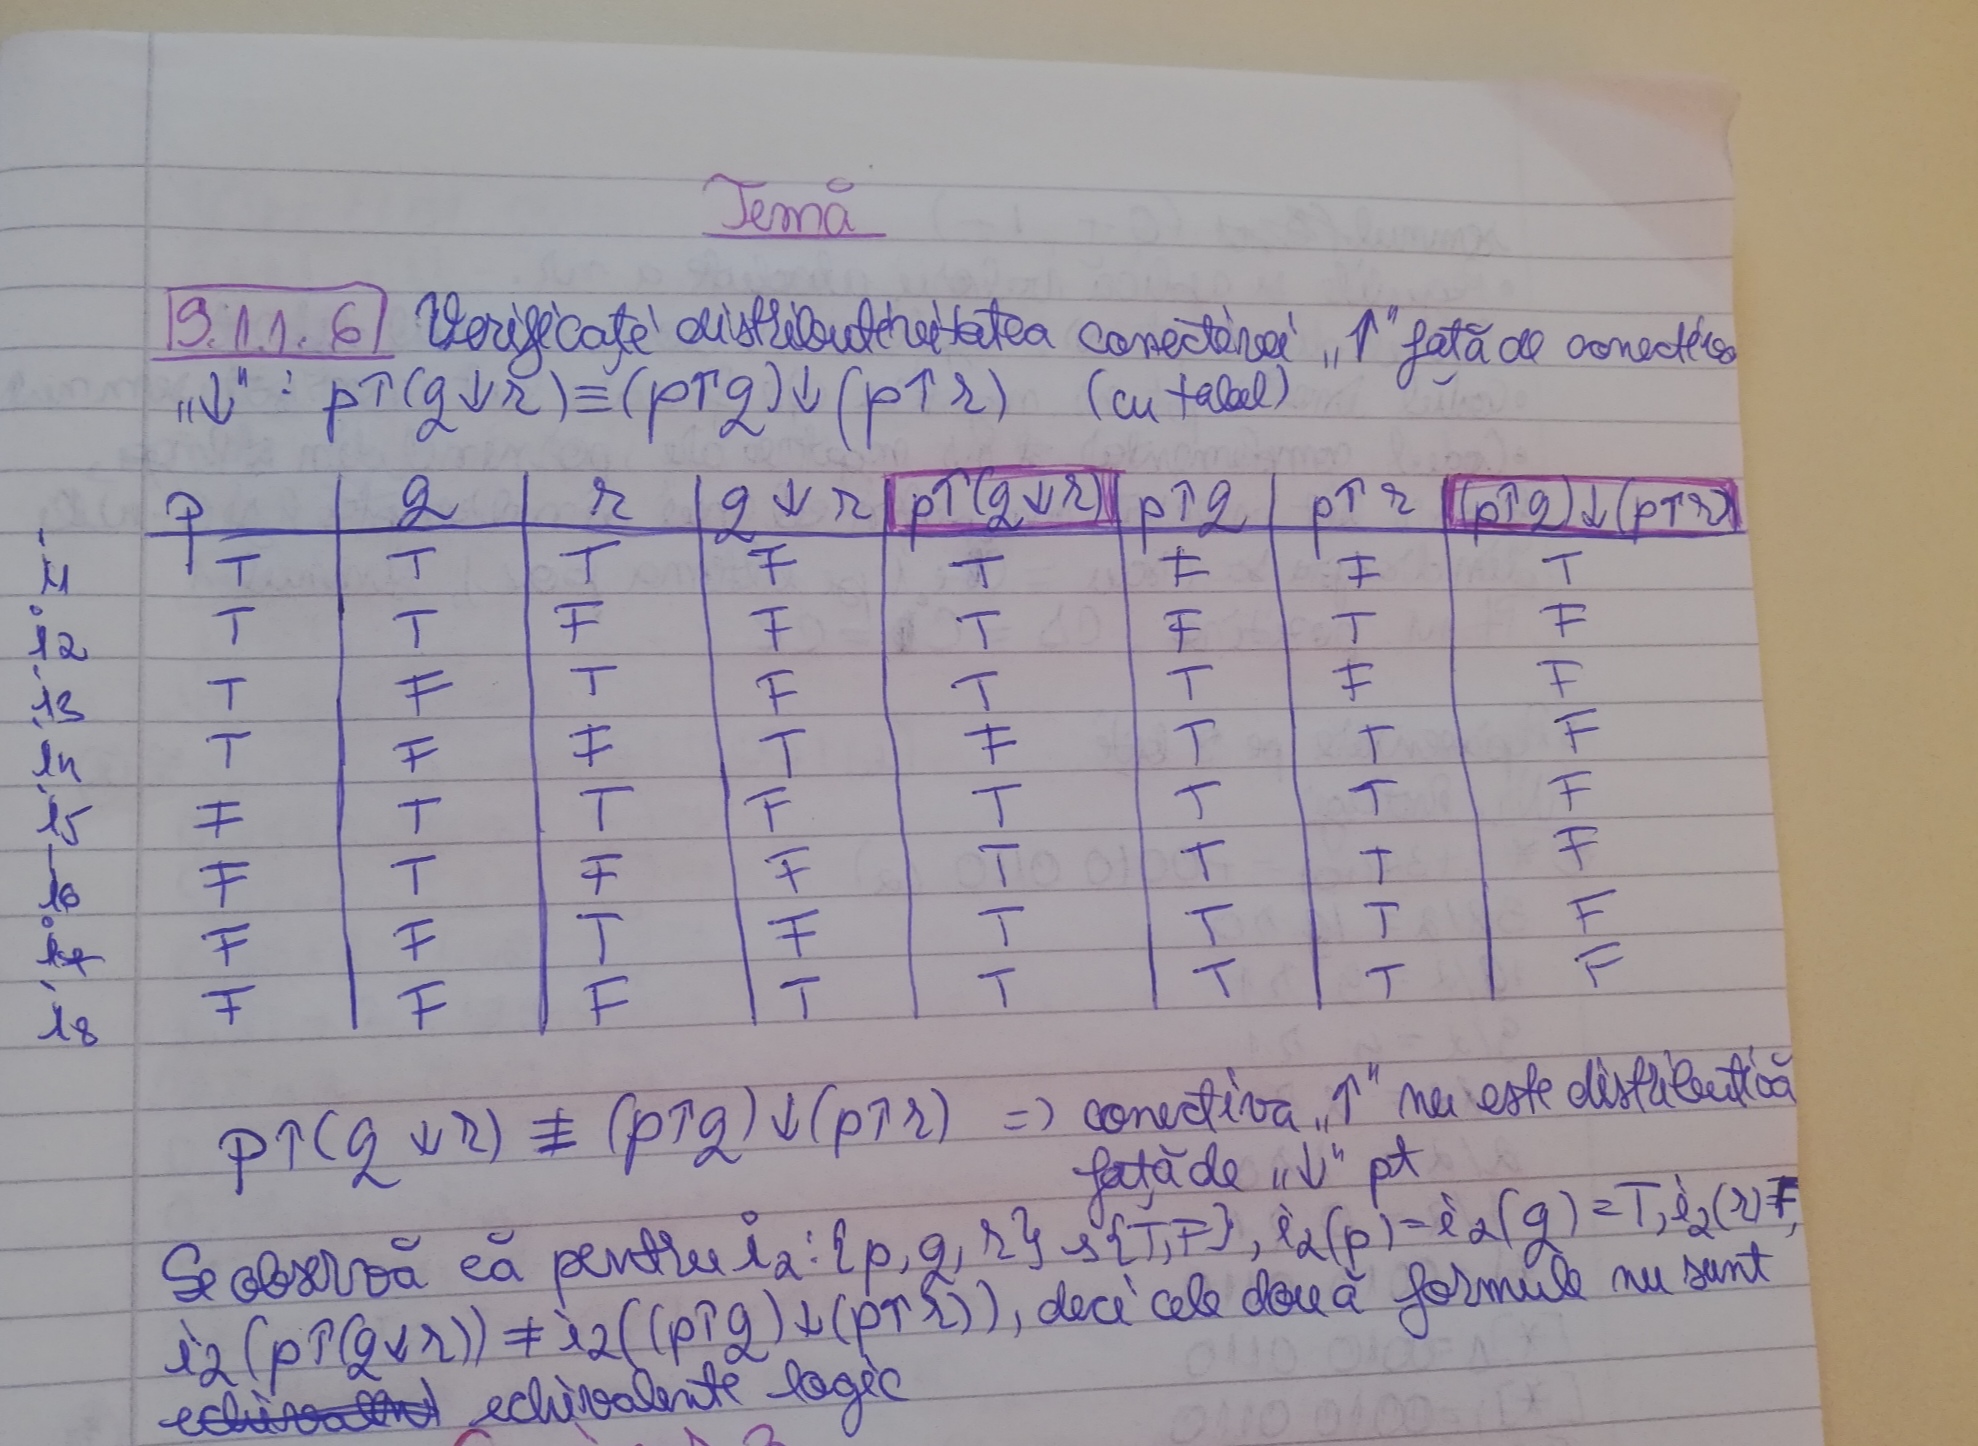 Temă
9.1.1.6 Verificați distributivitatea conectivei „↑" față de conectiva
„↓": p↑(q↓r)≡(p↑q)↓(p↑r) (cu tabel)
p q r q↓r p↑(q↓r) p↑q p↑r (p↑q)↓(p↑r)
i1 T T T F T F F T
i2 T T F F T F T F
i3 T F T F T T F F
i4 T F F T F T T F
i5 F T T F T T T F
i6 F T F F T T T F
i7 F F T F T T T F
i8 F F F T T T T F
p↑(q↓r) ≢ (p↑q)↓(p↑r) => conectiva „↑" nu este distributivă
față de „↓" pt
Se observă că pentru i2:{p,q,r}→{T,F}, i2(p)=i2(q)=T, i2(r)=F,
i2(p↑(q↓r))≠i2((p↑q)↓(p↑r)), deci cele două formule nu sunt
echivalente logic